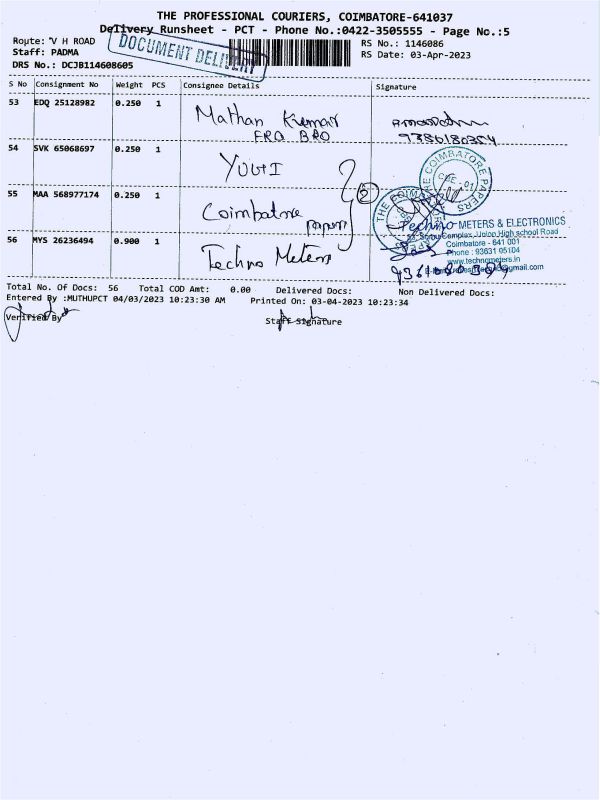 THE PROFESSIONAL COURIERS, COIMBATORE-641037
Delivery Runsheet - PCT - Phone No.:0422-3505555 - Page No.:5
Route: V H ROAD
DOCUMENT DELIVERY
RS No.: 1146086
Staff: PADMA
RS Date: 03-Apr-2023
DRS No.: DCJB114608605
S No Consignment No Weight PCS Consignee Details Signature
53 EDQ 25128982 0.250 1 Mathan Kumar
9786180354
54 SVK 65068697 0.250 1
THE COIMBATORE PAPERS
CBE - 01
55 MAA 568977174 0.250 1 Coimbatore papers 2
Techno METERS & ELECTRONICS
Complex, Union High school Road
56 MYS 26236494 0.900 1 Techno Meters
Coimbatore - 641 001
Phone : 93631 05104
www.technometers.in
Total No. Of Docs: 56 Total COD Amt: 0.00 Delivered Docs: Non Delivered Docs:
Entered By :MUTHUPCT 04/03/2023 10:23:30 AM Printed On: 03-04-2023 10:23:34
Verified By
Staff Signature